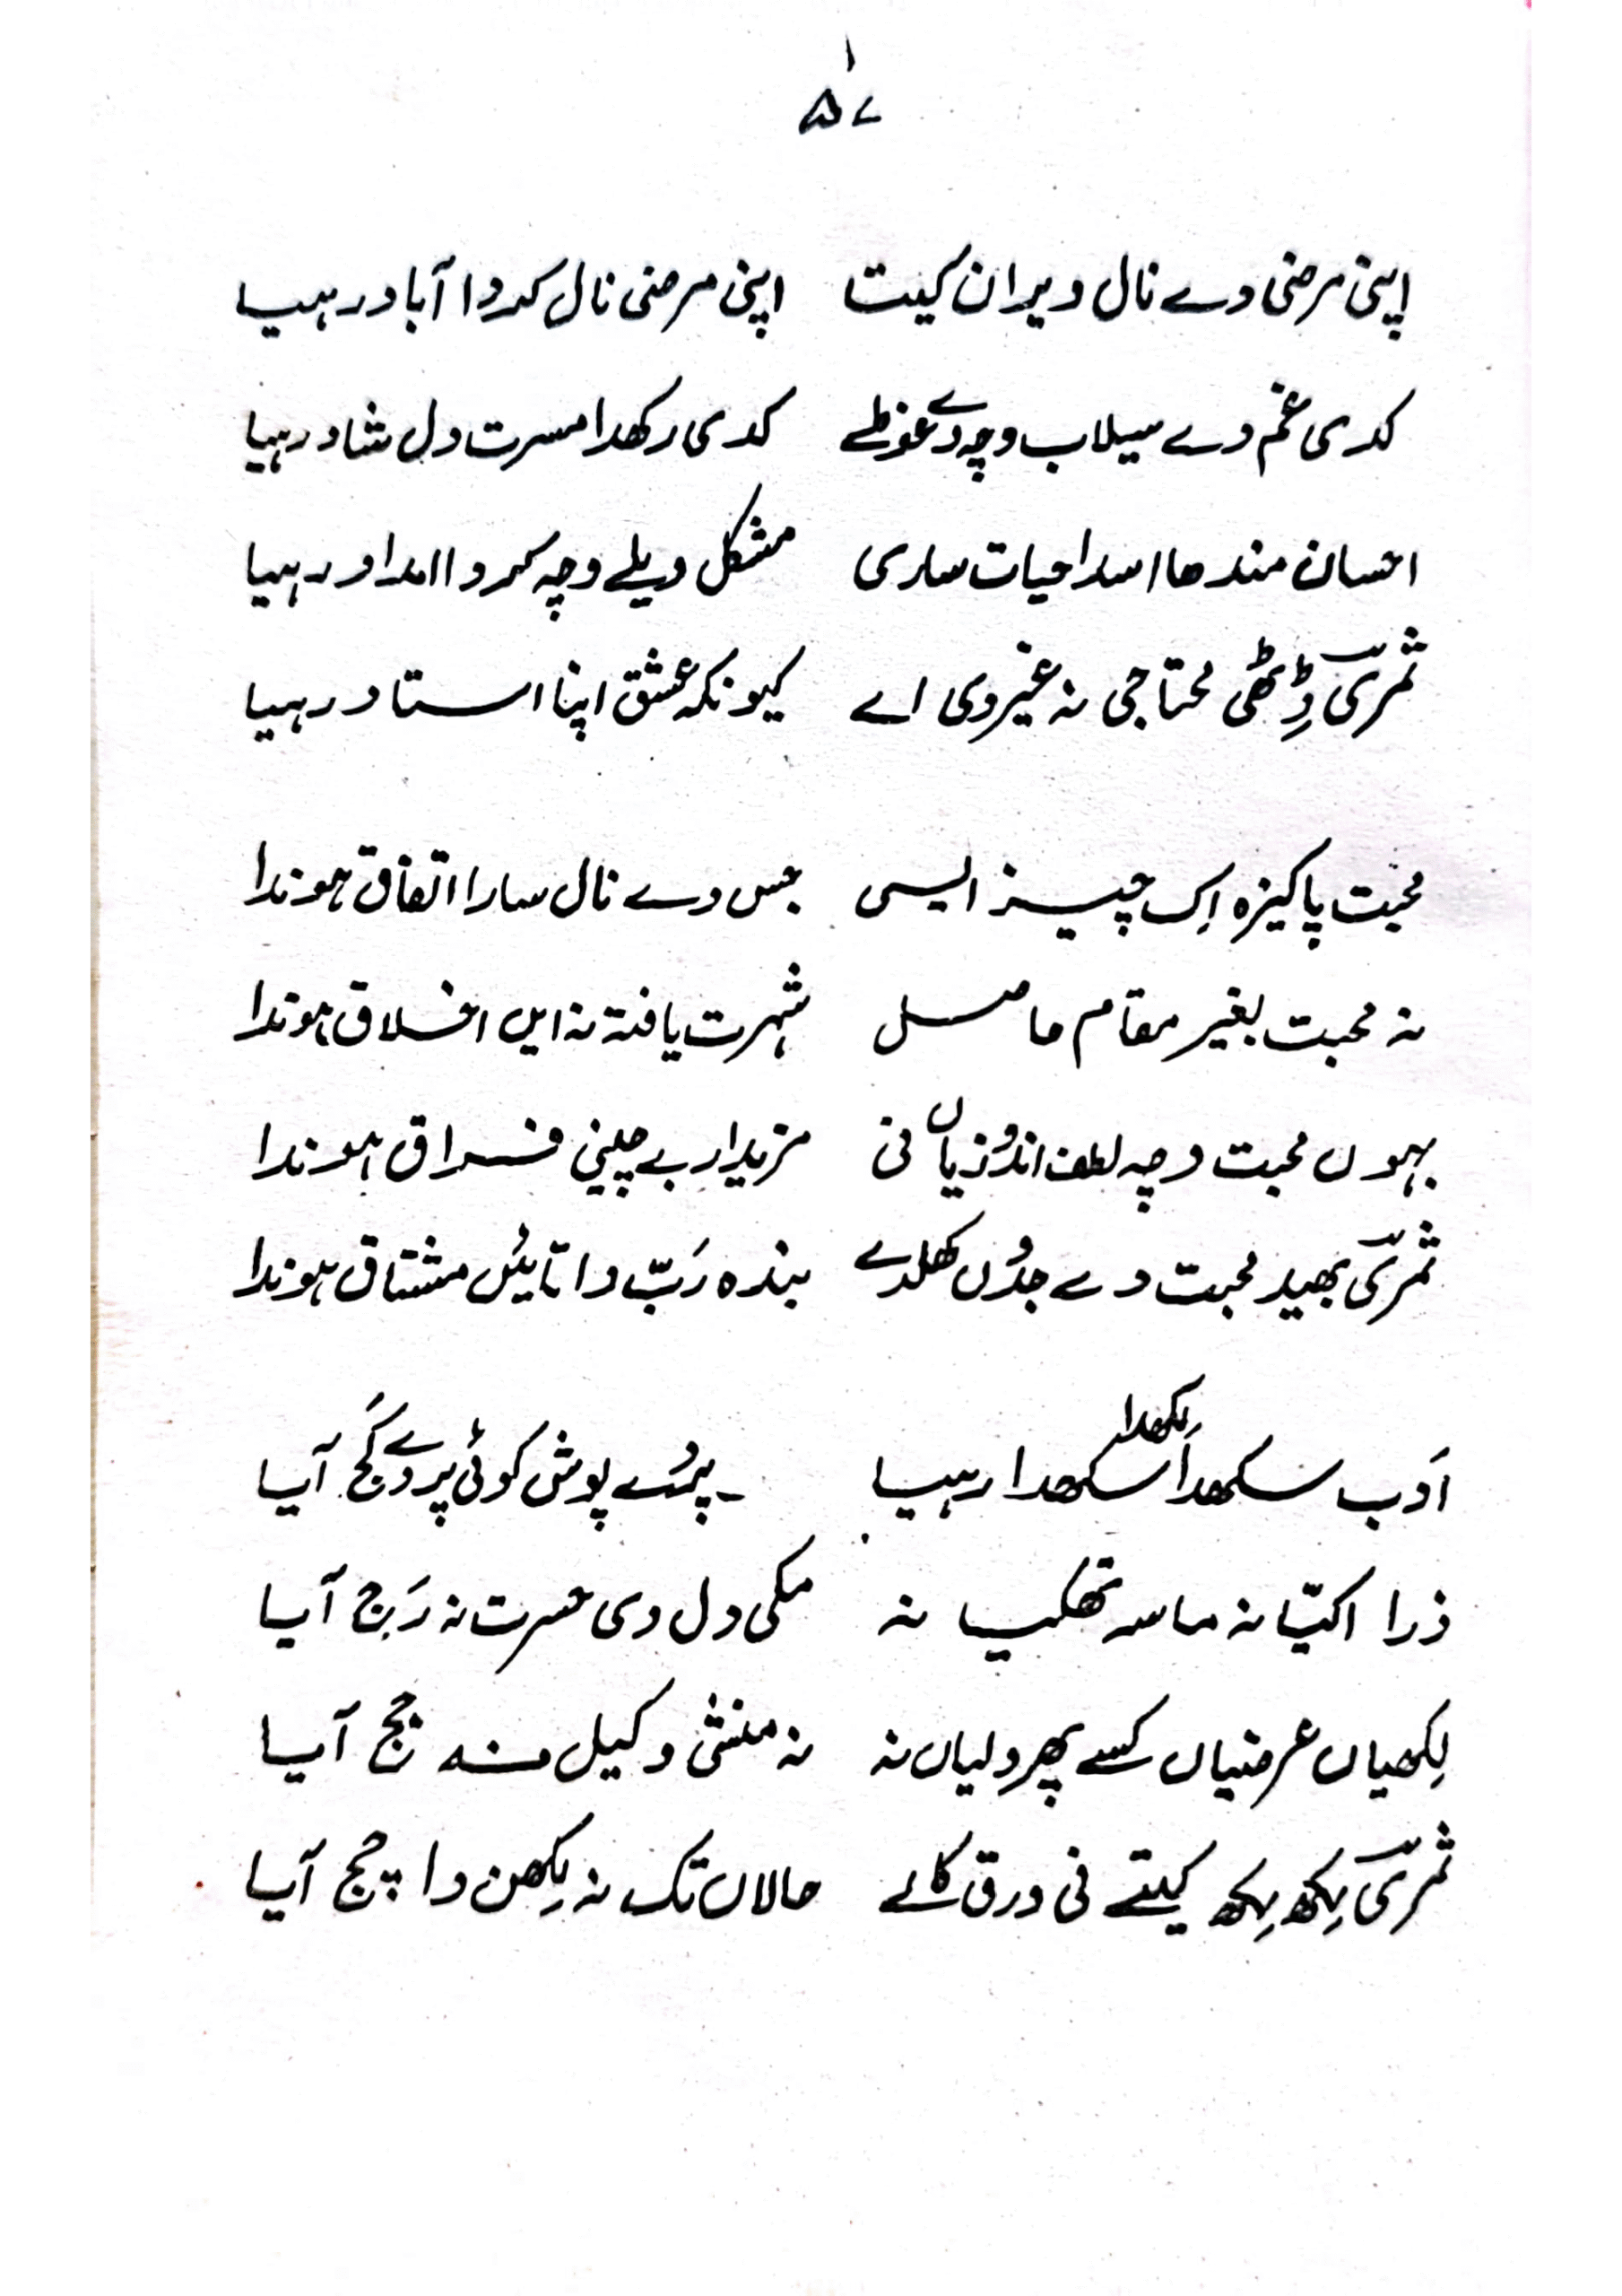 ۵۷
اپنی مرضی دے نال ویران کیتا اپنی مرضی نال کردا آباد رہیا
کدی غم دے سیلاب وچہ دے غوطے کدی رکھدا مسرت دل شاد رہیا
احسان مند ہاں اسدا حیات ساری مشکل ویلے وچہ کردا امداد رہیا
ثمریؔ ڈِٹھی محتاجی نہ غیر دی اے کیونکہ عشق اپنا استاد رہیا
محبت پاکیزہ اِک چیز ایسی جس دے نال سارا اتفاق ہوندا
نہ محبت بغیر مقام حاصل شہرت یافتہ نہ ایں اخلاق ہوندا
بہوں محبت وچہ لطف اندُوزیاں نی مزیدار بے چینی فراق ہوندا
ثمریؔ بھید محبت دے جدُوں کھلدے بندہ رَبّ دا تائیں مشتاق ہوندا
اَدب سکھدا لکھدا سکھدا رہیا پردے پوش کوئی پردے کَج آیا
ذرا اکیّا نہ ماسہ تھکیا نہ مکی دل دی حسرت نہ رَج آیا
لِکھیاں عرضیاں کسے پھرولیاں نہ نہ منشی وکیل نہ جج آیا
ثمریؔ لِکھ لِکھ کیتے نی ورق کالے حالاں تک نہ لِکھن دا چج آیا